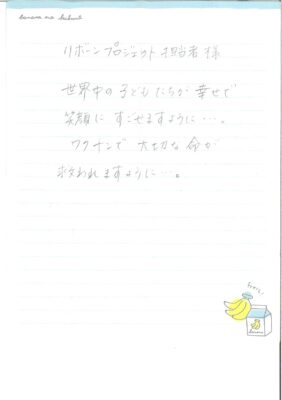 リボーンプロジェクト担当者様
世界中の子どもたちが幸せで
笑顔にすごせますように…。
ワクチンで大切な命が
救われますように…。